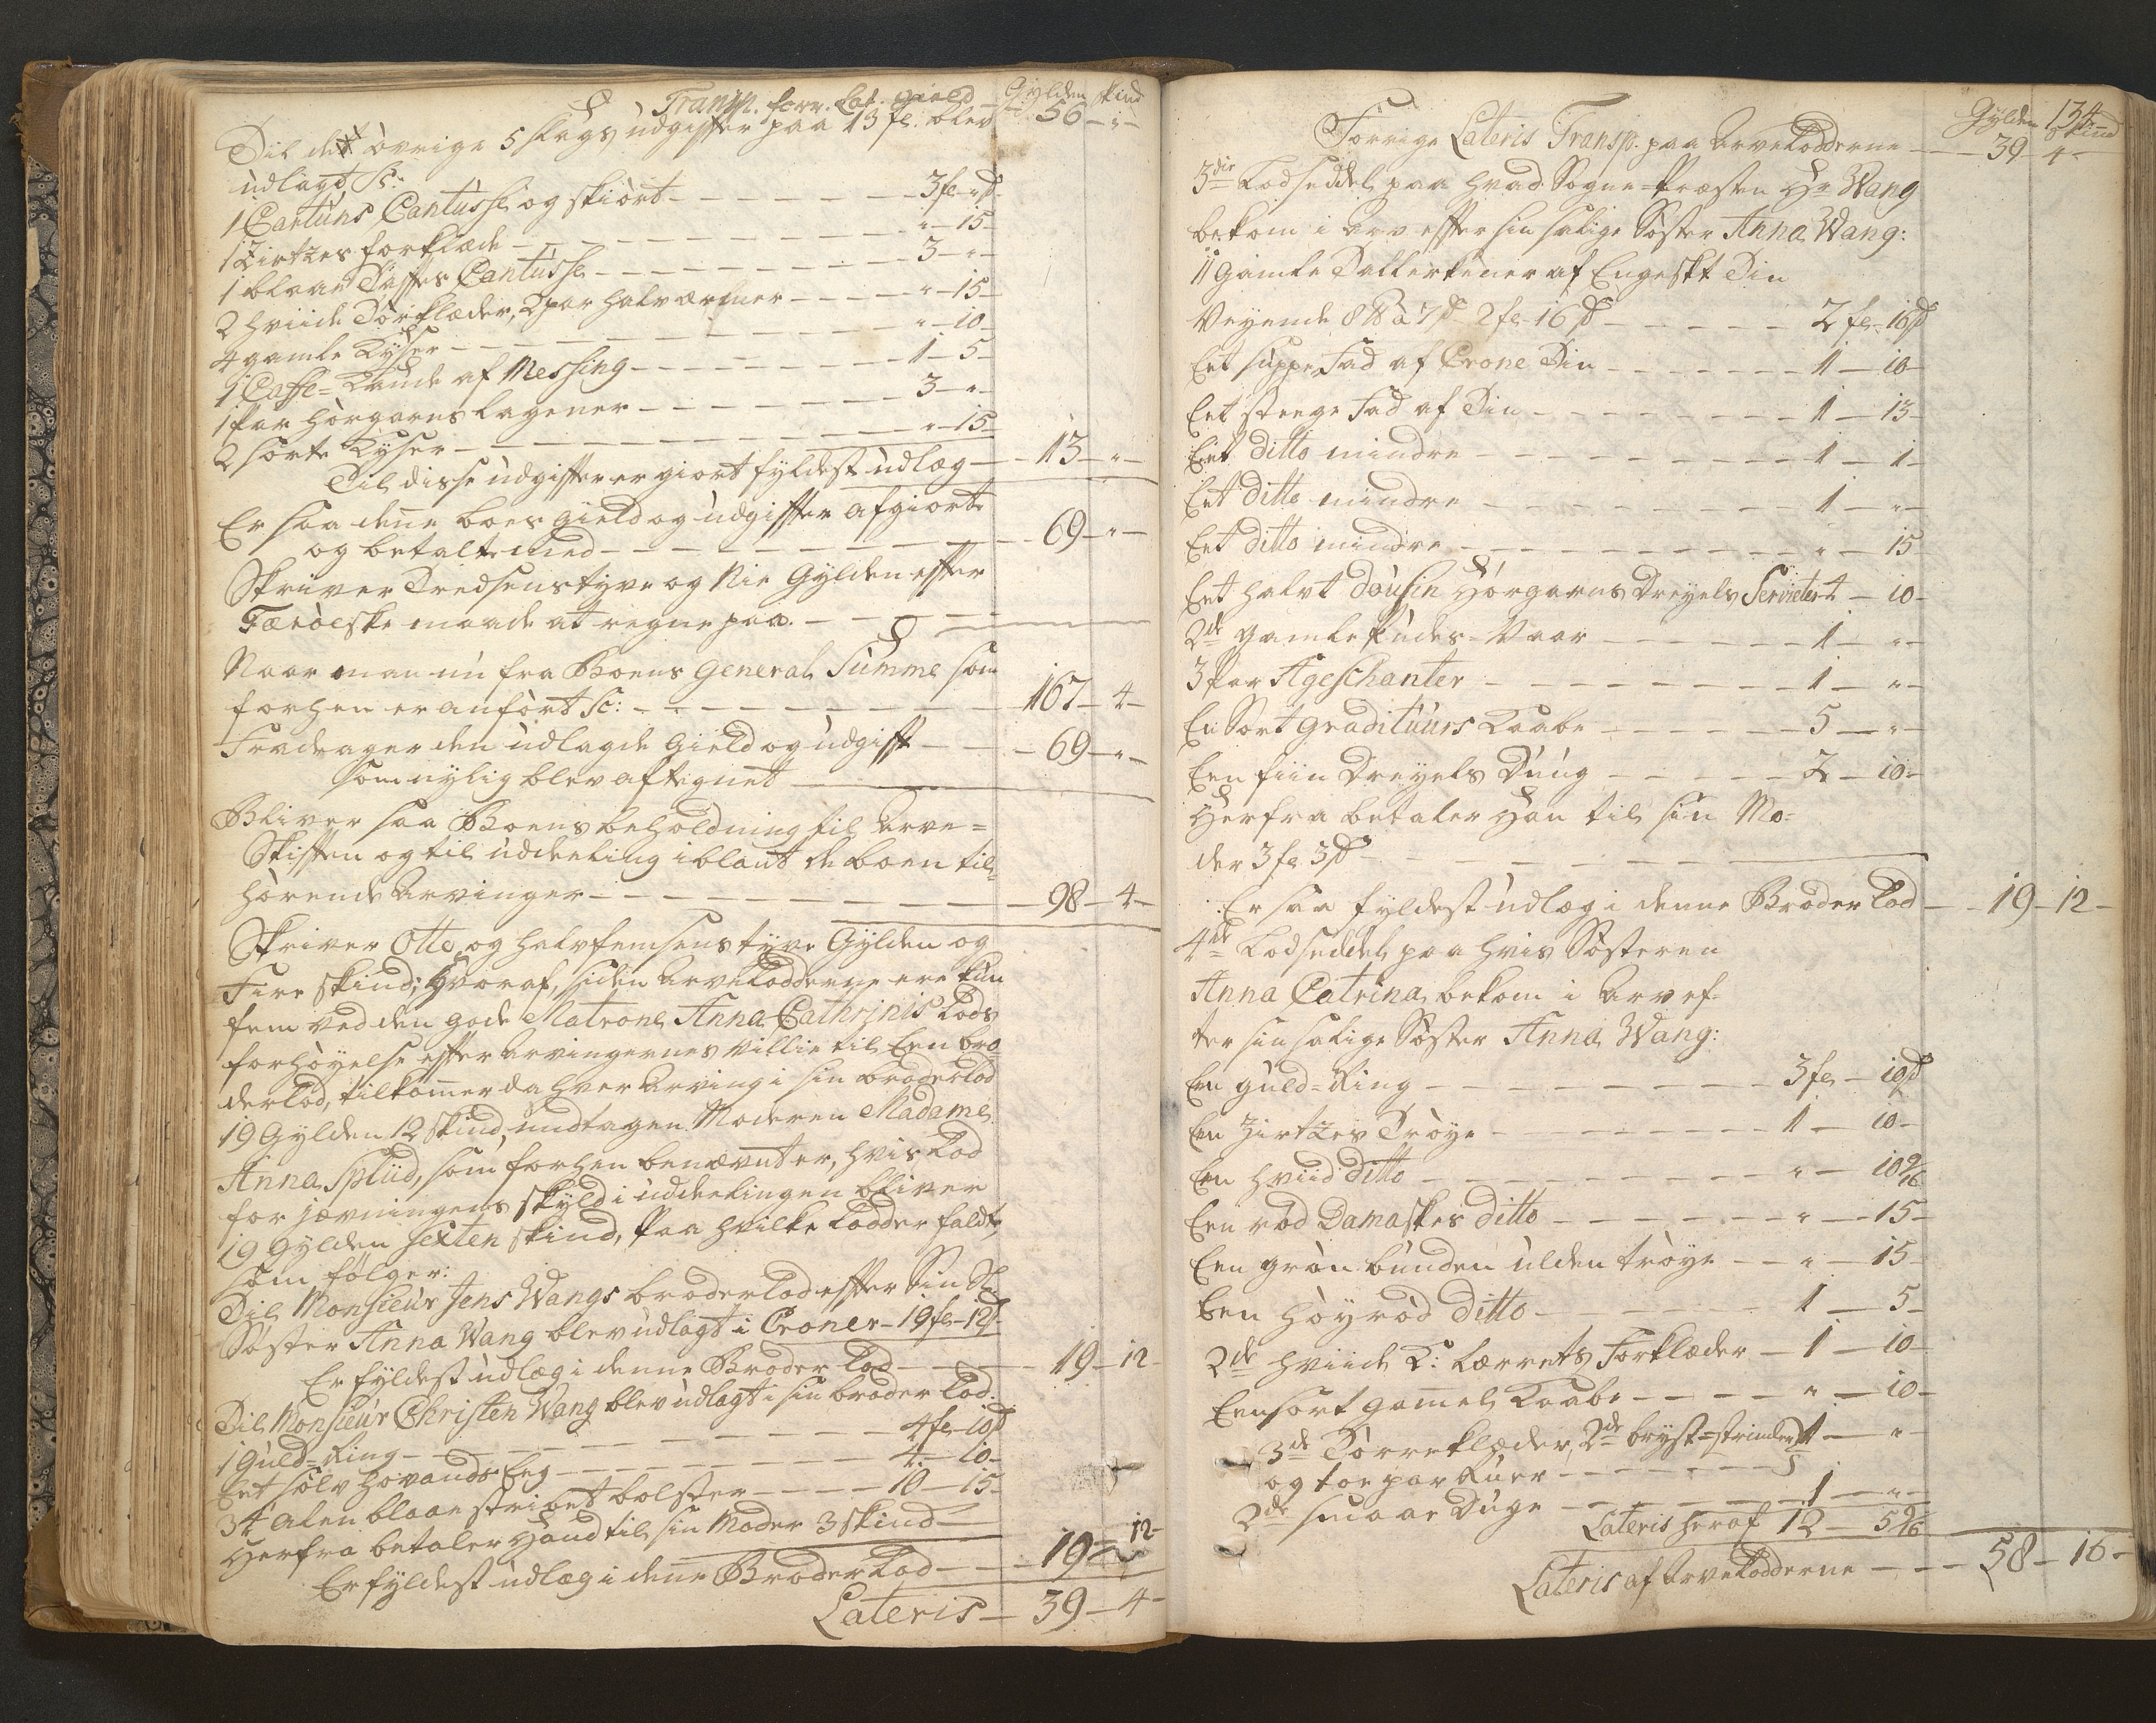 Transp. forr. Lat. gield — Gylden Skind
56 — " —
Til det øvrige 5 slags udgifter paa 13 fl. blev
udlagt Sc:
1 Cartuns Cantusche og skiört — 3 fl — " s
1 Zirtzes forklæde — " — 15 —
1 blaae Taffes Cantusche — 3 — " —
2 hviide Törklæder, 2 par halværmer — " — 15 —
4 gamle Kyser — " — 10 —
1 Caffe-Kande af Messing — 1 — 5 —
1 Par hörgarns Lagener — 3 — " —
2 sorte Kyser — " — 15
Til disse udgifter er giort fyldest udlæg — 13 — " —
Er saa denne boes gield og udgifter afgiort
og betalt med — 69 — " —
Skriver Tredsenstyve og Nie Gylden efter
Færöeske maade at regne paa. —
Naar man nu fra Boens General Summe som
forhen er anfört Sc: — 167 — 4 —
Fradrager den udlagde gield og udgift — 69 — " —
som nylig blev aftegnet —
Bliver saa Boens beholdning til Arve=
Skiften og til uddeeling iblant de boen til=
hörende Arvinger — 98 — 4 —
Skriver Otte og halvfemsenstyve Gylden og
Fire skind; hvoraf, siden Arvelodderne ere kun
fem ved den gode Matrone Anna Cathrinis Lods
forhöyelse efter Arvingernes villie til Een bro=
derlod, tilkommer da hver Arving i sin broderlod
19 Gylden 12 skind, undtagen Moderen Madame
Anna Splid, som forhen benævnt er, hvis Lod
for jævningens skyld i uddeelingen bliver
19 Gylden sexten skind, Paa hvilke Lodder faldt,
som fölger:
Til Monsieur Jens Wangs broderlod efter Sin Sl.
Söster Anna Wang blev udlagt i Croner — 19 fl — 12 s
Er fyldest udlæg i denne Broder Lod — 19 — 12 —
Til Monsieur Christen Wang blev udlagt i sin broder Lod:
1 Guld-Ring — 4 fl — 10 s
Eet sölv hovands Eeg — 4 — 10 —
34 Alen blaae stribet bolster — 10 — 15 —
Herfra betaler Hand til sin Moder 3 skind —
Er fyldest udlæg i denne Broder Lod — 19 — 12 —
Lateris — 39 — 4 —
134
Gylden Skind
Forrige Lateris Transp. paa Arvelodderne — 39 — 4 —
3die Lodseddel paa hvad Sogne-Præsten Hr Wang
bekom i Arv efter sin salige Söster Anna Wang:
11 Gamle Tallerkener af Engelskt Tin
Veyende 8 ℔ à 7 s 2 fl 16 s — 2 fl — 16 s
Eet suppe Fad af Crone Tin — 1 — 10 —
Eet steege Fad af Tin — 1 — 13 —
Eet ditto mindre — 1 — 1 —
Eet ditto mindre — 1 — " —
Eet ditto mindre — " — 15
Eet halvt dousin Hörgarns Dreyels Servieter 4 — 10 —
2de gamle Pudes-Vaar — 1 — " —
3 Par Ageschanter — 1 — " —
En Sort Gradituurs Kaabe — 5 — " —
Een fiin Dreyels Duug — 2 — 10 —
Herfra betaler Han til sin Mo=
der 3 fl 3 s —
Er saa fyldest udlæg i denne Broder Lod — 19 — 12 —
4de Lodseddel paa hvis Sösteren
Anna Catrina bekom i Arv ef=
ter sin salige Söster Anna Wang:
Een guld-Ring — 3 fl — 10 s
Een Zirtzes Tröye — 1 — 10 —
Een hviid ditto — " — 10 9/16
Een röd Damaskes ditto — " — 15 —
Een grön bunden ulden tröye — " — 15 —
Een höyröd ditto — 1 — 5 —
2de hviide K: Lærrets Forklæder — 1 — 10 —
Een sort gamel Kaabe — " — 10 —
3de Törreklæder, 2de bryst-strimler 1 — " —
og toe par Ruer —
2de smaae Duge — 1 — " —
Lateris heraf 12 — 5 9/16
Lateris af Arvelodderne — 58 — 16 —